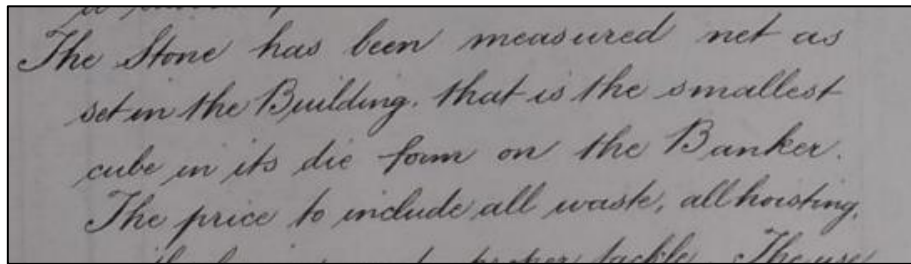 The Stone has been measured net as
set in the Building. that is the smallest
cube in its die form on the Banker.
The price to include all waste, all hoisting,
proper tackle. The use